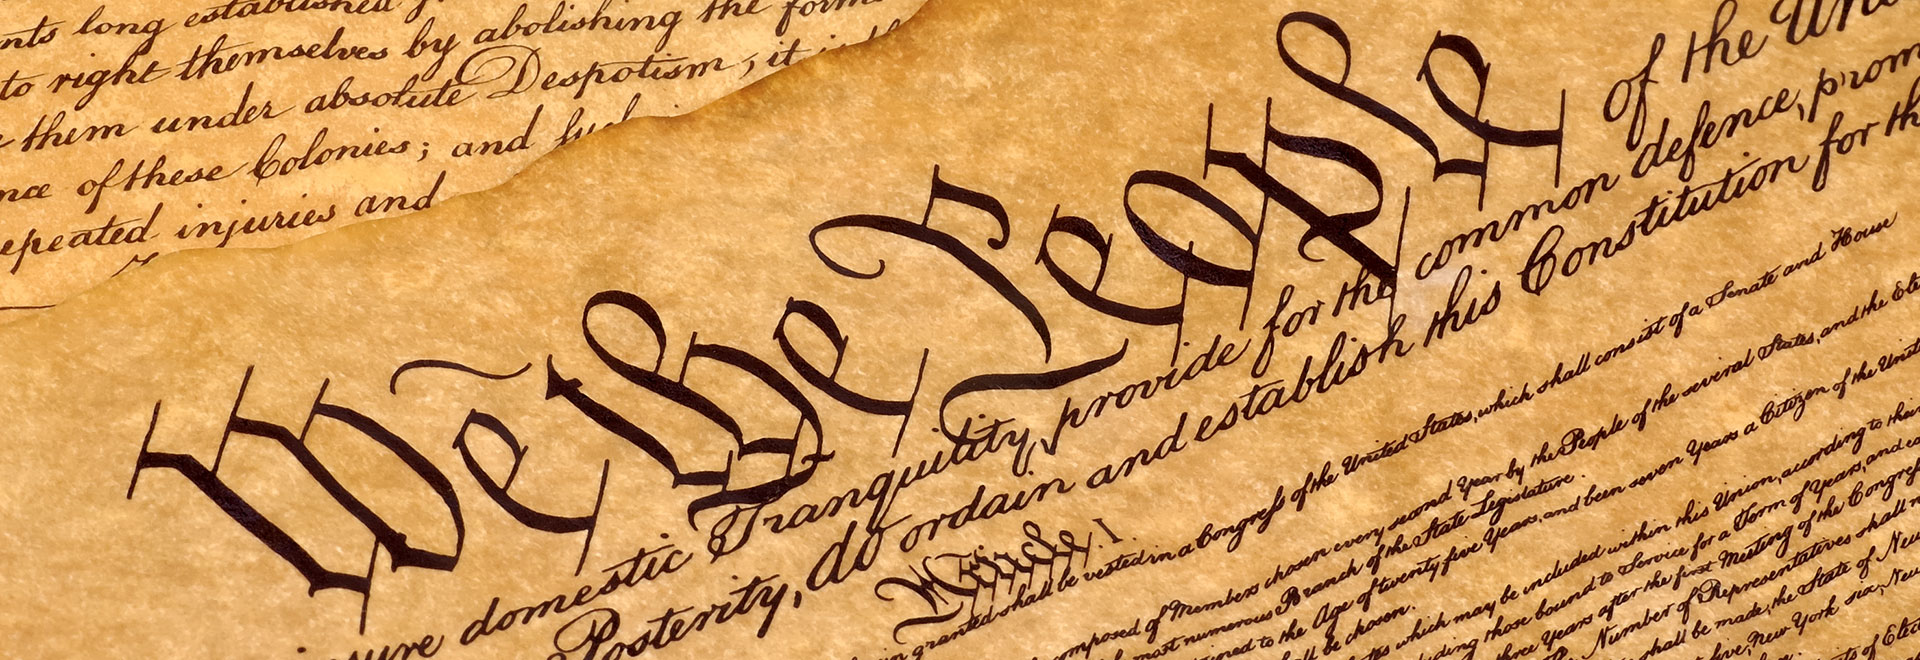 nts long established
to right themselves by abolishing the forms
them under absolute Despotism, it is
nce of these Colonies; and such
epeated injuries and
We the People of the Un
sure domestic Tranquility, provide for the common defence, prom
Posterity, do ordain and establish this Constitution for th
Article I.
granted shall be vested in a Congress of the United States, which shall consist of a Senate and House
mposed of Members chosen every second Year by the People of the several States, and the Elec
most numerous Branch of the State Legislature.
ained to the Age of twenty five Years, and been seven Years a Citizen of the Unit
all be chosen.
ates which may be included within this Union, according to their
uding those bound to Service for a Term of Years, and
three Years after the first Meeting of the Congress
Number of Representatives shall n
shall be made, the State of New
five, New York six, New